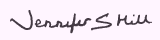 Jennifer S Hill